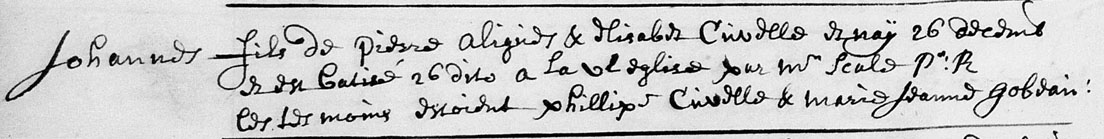 Johannes fils de Pierre Alignes & Elisabet Cuvelle est nay 26 decemb
et est batisé 26 dito a la vl eglise par Mr Scale P: R
les tesmoins estoient Phillipe Cuvelle & Marie Jeanne Gobeau: